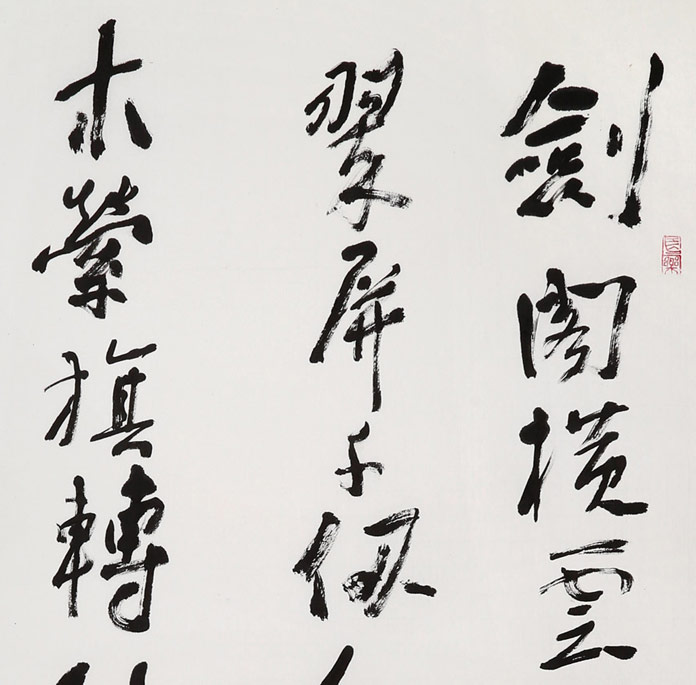 劍閣橫雲
翠屏千仞
木縈旗轉